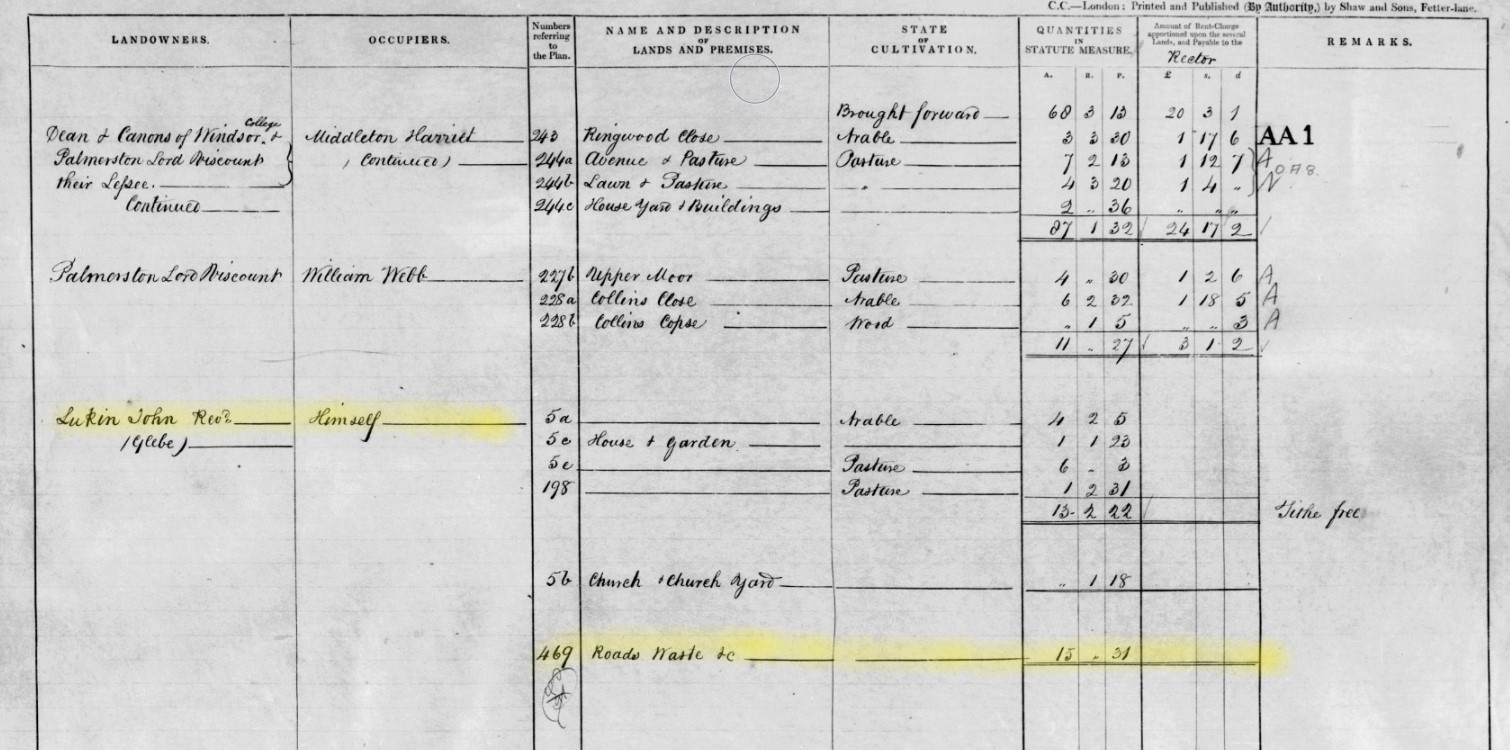 C.C.—London: Printed and Published (By Authority,) by Shaw and Sons, Fetter-lane.
LANDOWNERS. OCCUPIERS. Numbers referring to the Plan. NAME AND DESCRIPTION OF LANDS AND PREMISES. STATE OF CULTIVATION. QUANTITIES IN STATUTE MEASURE. Amount of Rent-Charge apportioned upon the several Lands, and Payable to the Rector REMARKS.
A. R. P. £ s. d
Brought forward 68 3 13 20 3 1
Dean & Canons of Windsor College & Middleton Harriet 243 Ringwood Close Arable 3 3 30 1 17 6 AA1
Palmerston Lord Viscount (Continued) 244a Avenue & Pasture Pasture 7 2 13 1 12 7 A
their Lessee. 244b Lawn & Pasture " 4 3 20 1 4 "
Continued 244c House Yard & Buildings 2 " 36 " " "
87 1 32 24 17 2
Palmerston Lord Viscount William Webb 227b Upper Moor Pasture 4 " 30 1 2 6 A
228a Collins Close Arable 6 2 32 1 18 5 A
228b Collins Copse Wood " 1 5 " " 3 A
11 " 27 3 1 2
Lukin John Revd. Himself 5a Arable 4 2 5
(Glebe) 5c House & Garden 1 1 23
5e Pasture 6 " 3
198 Pasture 1 2 31
13 2 22 Tithe free
5b Church & Church Yard " 1 18
469 Roads Waste &c 15 " 31